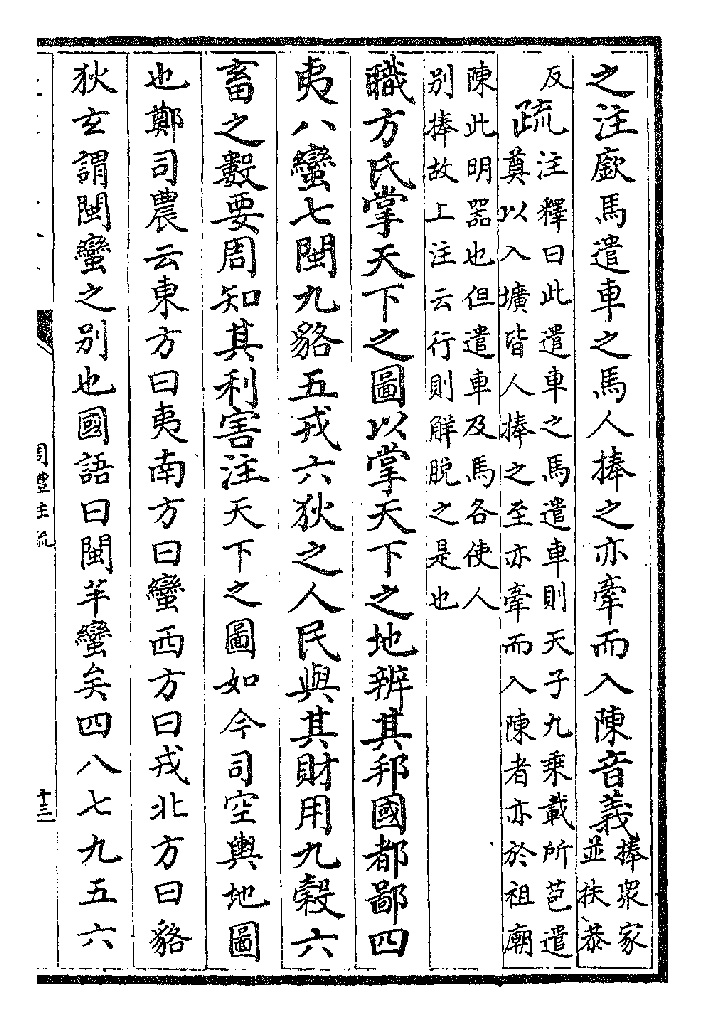 之注廞馬遣車之馬人捧之亦牽而入陳音義捧衆家
並扶恭
反疏注釋曰此遣車之馬遣車則天子九乘載所苞遣
奠以入壙皆人捧之至亦牽而入陳者亦於祖廟
陳此明器也但遣車及馬各使人
別捧故上注云行則解脫之是也
職方氏掌天下之圖以掌天下之地辨其邦國都鄙四
夷八蠻七閩九貉五戎六狄之人民與其財用九穀六
畜之數要周知其利害注天下之圖如今司空輿地圖
也鄭司農云東方曰夷南方曰蠻西方曰戎北方曰貉
狄玄謂閩蠻之别也國語曰閩芊蠻矣四八七九五六
周禮注疏
十三